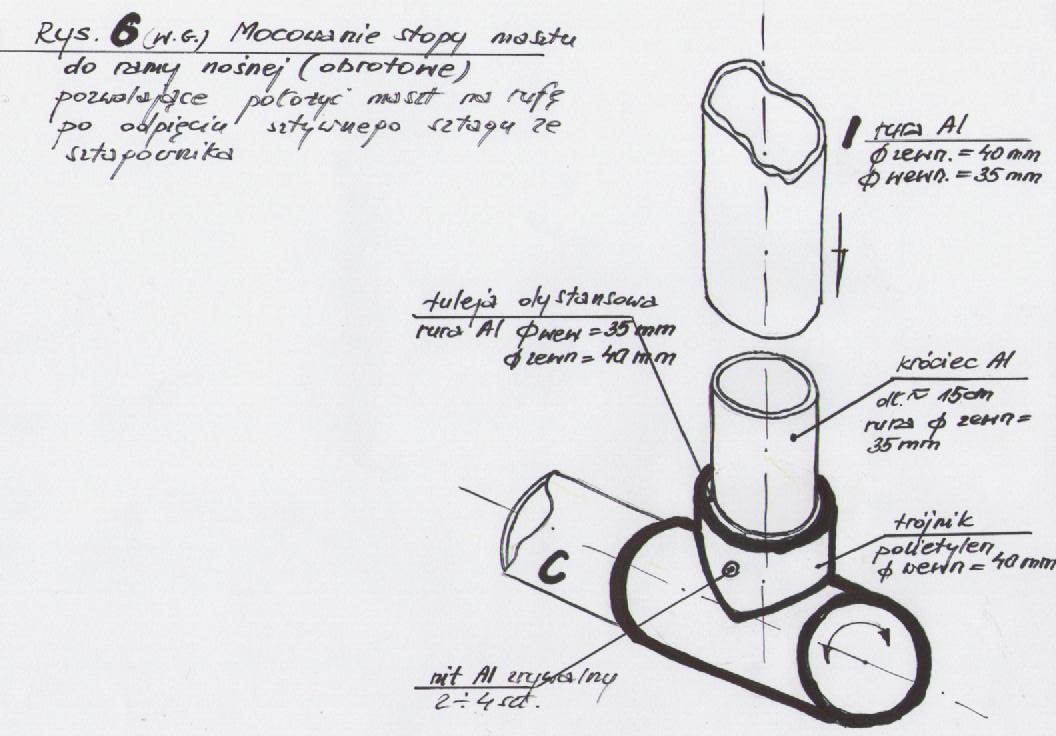 Rys. 6 (w.G.) Mocowanie stopy masztu
do ramy nośnej (obrotowe)
pozwalające położyć maszt na rufę
po odpięciu sztywnego sztagu ze
sztagownika
1 rura Al
ϕ zewn. = 40 mm
ϕ wewn. = 35 mm
tuleja dystansowa
rura Al ϕ wew = 35 mm
ϕ zewn = 40 mm
króciec Al
dł. ≈ 15cm
rura ϕ zewn =
35 mm
trójnik
polietylen
ϕ wewn = 40 mm
C
nit Al zrywalny
2÷4 szt.